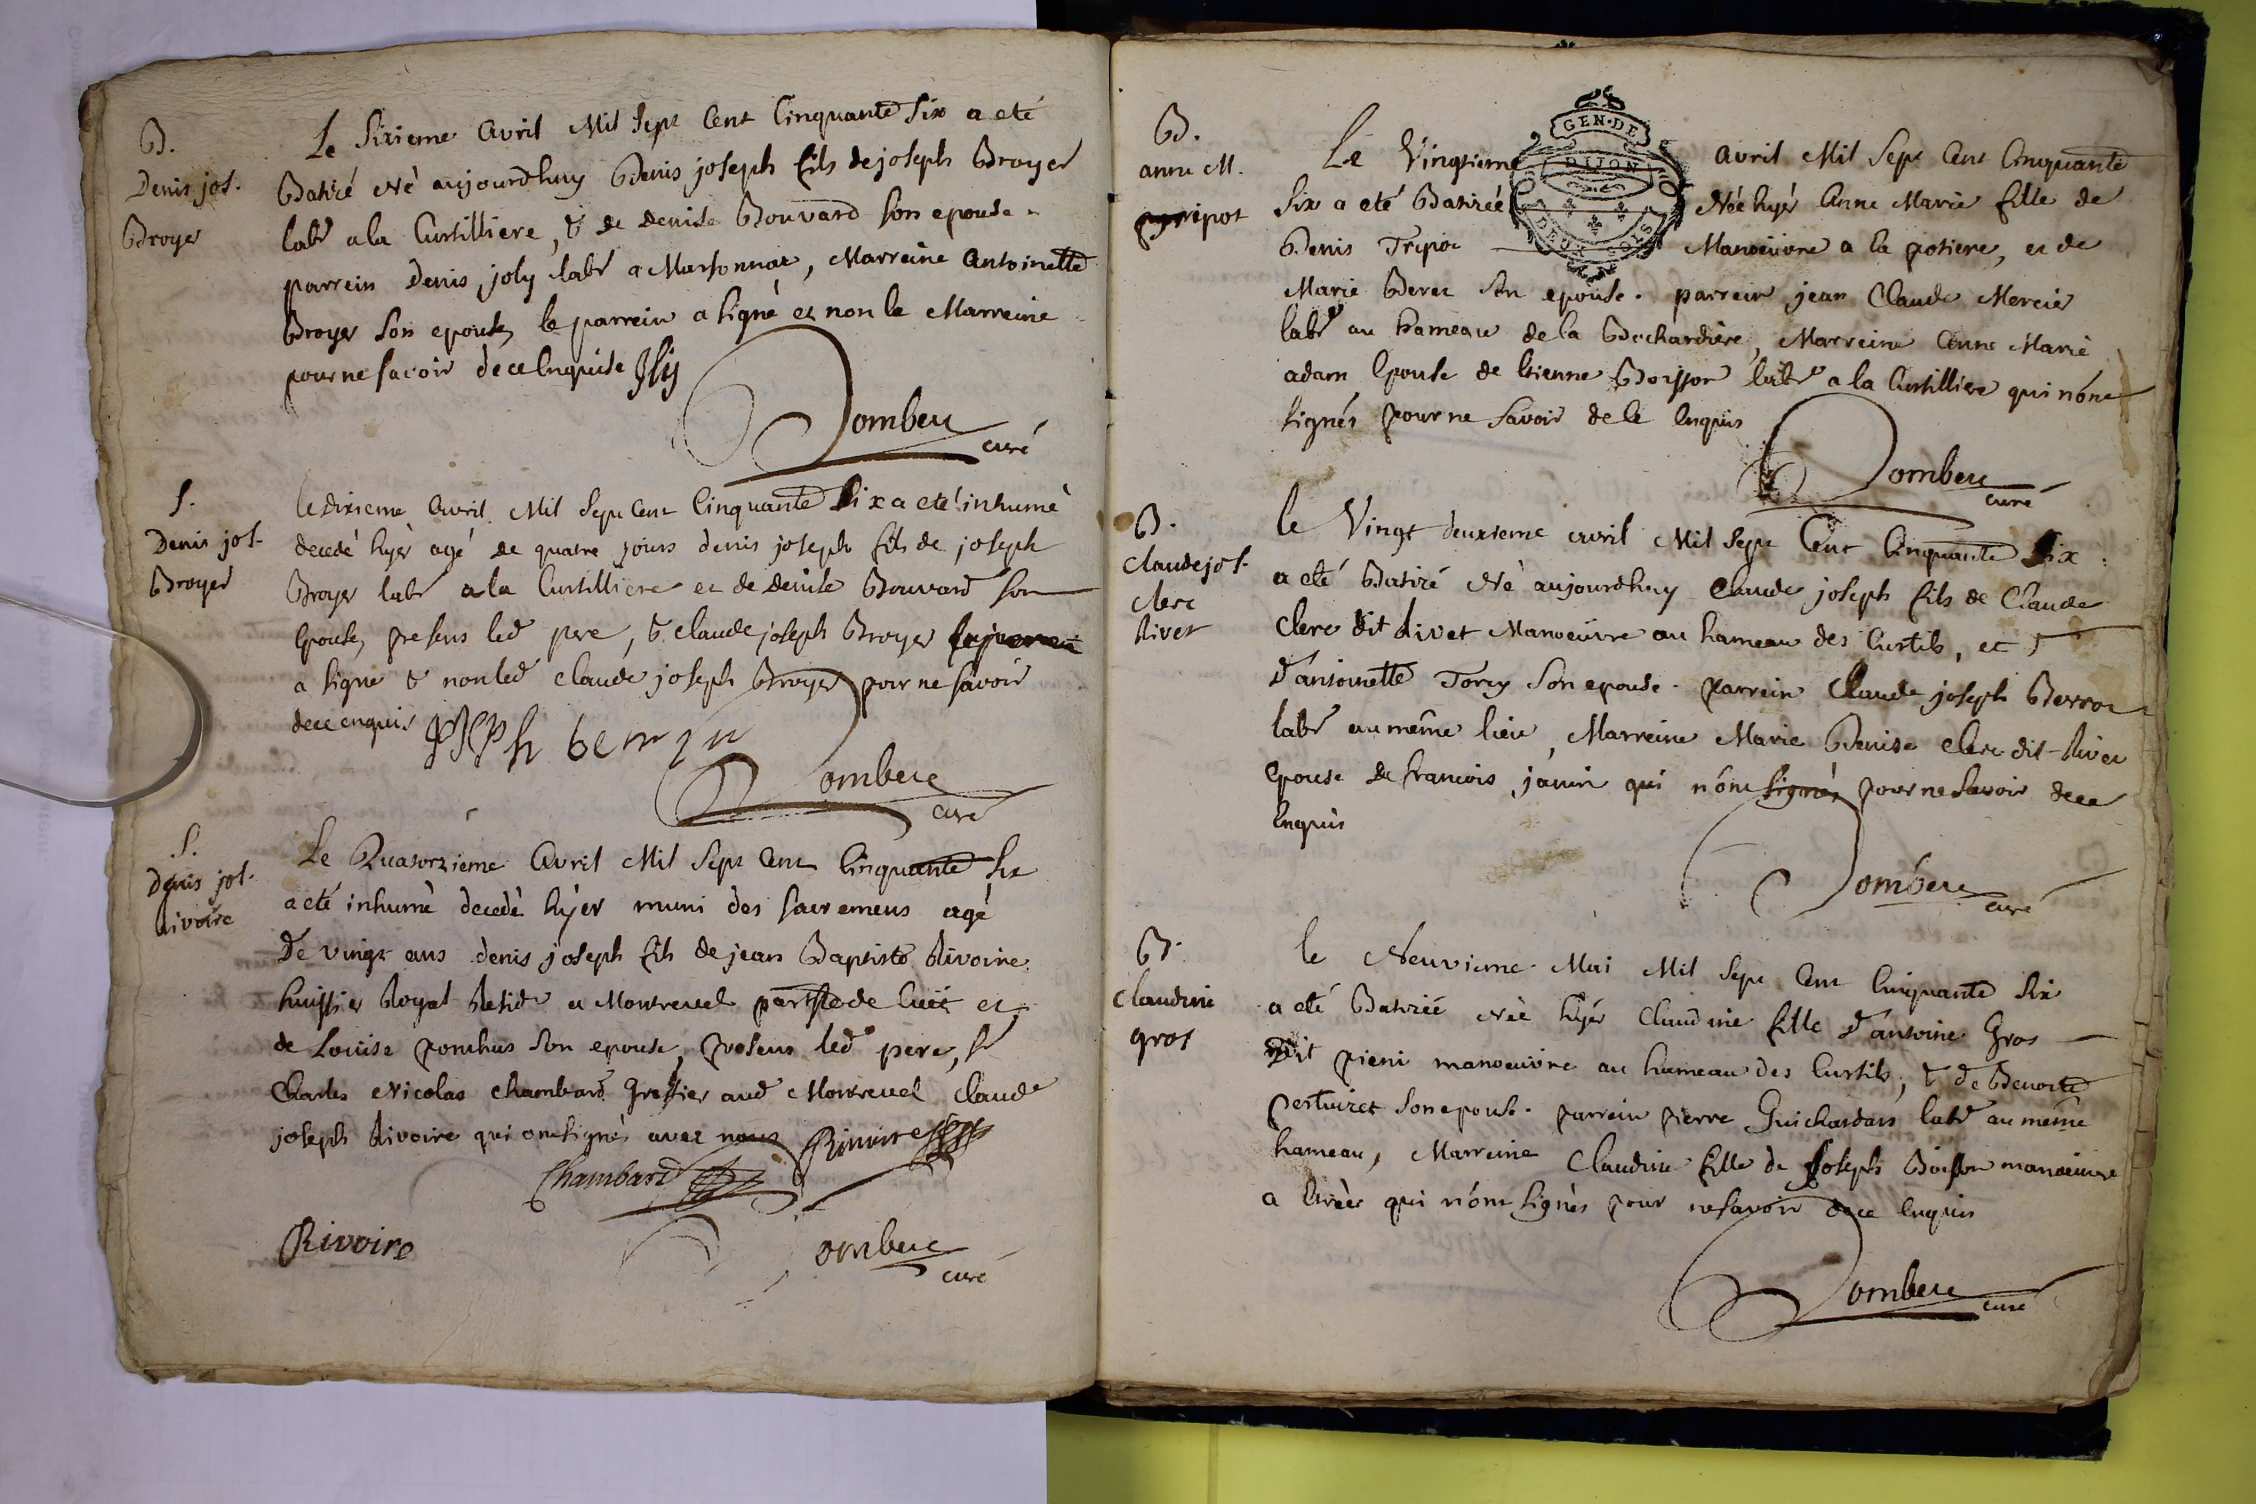 B.
Denis jos.
Broyer
Le Sixieme Avril Mil Sept Cent Cinquante Six a eté
Batizé Né aujourdhuy Denis joseph fils de joseph Broyer
labr a la Curtilliere, & de denise Bouvard son epouse.
parrein Denis joly labr a Marsonnat, Marreine Antoinette
Broyer son epouse, le parrein a signé et non la Marreine
pour ne savoir de ce Enquise
Dombeu
curé
S.
Denis jos.
Broyer
le dixieme Avril Mil Sept Cent Cinquante Six a eté inhumé
decedé hyer agé de quatre jours denis joseph fils de joseph
Broyer labr a la Curtilliere et de denise Bouvard son
Epouse, presens led pere, & claude joseph Broyer
a signe & non led claude joseph Broyer pour ne savoir
de ce enquis
Dombeu
curé
S.
Denis jos.
Rivoire
Le Quatorzieme Avril Mil Sept Cent Cinquante Six
a eté inhumé decedé hyer muni des sacremens agé
De vingt ans denis joseph fils de jean Baptiste Rivoire
huissier Royal Resid a Montrevel de Cuët et
de Louise ponthus son epouse, presens led pere, Sr
Charles Nicolas Chambard Greffier aud Montrevel Claude
joseph Rivoire qui ont signés avec nous Rivoire
Chambard
Rivoire
Dombeu
curé
B.
anne M.
tripot
GEN. DE
DIJON
DEUX SOLS
Le Vingtieme Avril Mil Sept Cent Cinquante
Six a eté Batizée Née hyer Anne Marie fille de
Denis Tripot Manoeuvre a la potiere, et de
Marie Beret son epouse. parrein jean Claude Mercier
labr au hameau de la Bochardiere, Marreine Anne Marie
adam Epouse de Etienne Boisson labr a la Curtilliere qui n'ont
signés pour ne savoir de ce Enquis
Dombeu
curé
B.
Claude jos.
Clerc
Rivet
le Vingt deuxieme avril Mil Sept Cent Cinquante Six
a eté Batizé Né aujourdhuy Claude joseph fils de Claude
Clerc dit Rivet Manoeuvre au hameau des Curtils, et
D'antoinette Torcy son epouse. parrein Claude joseph
labr au même lieu, Marreine Marie Denise Clerc dit Rivet
Epouse de francois janin qui n'ont signés pour ne savoir de ce
Enquis
Dombeu
curé
B.
Claudine
gros
le Neuvieme Mai Mil Sept Cent Cinquante Six
a eté Batizée Née hyer Claudine fille D'antoine Gros
Dit pieni manoeuvre au hameau des Curtils, & de Benoite
Pertuizet son epouse. parrein pierre Guichardan labr au même
hameau, Marreine Claudine fille de Joseph Boisson manoeuvre
a qui n'ont signés pour ne savoir de ce enquis
Dombeu
curé